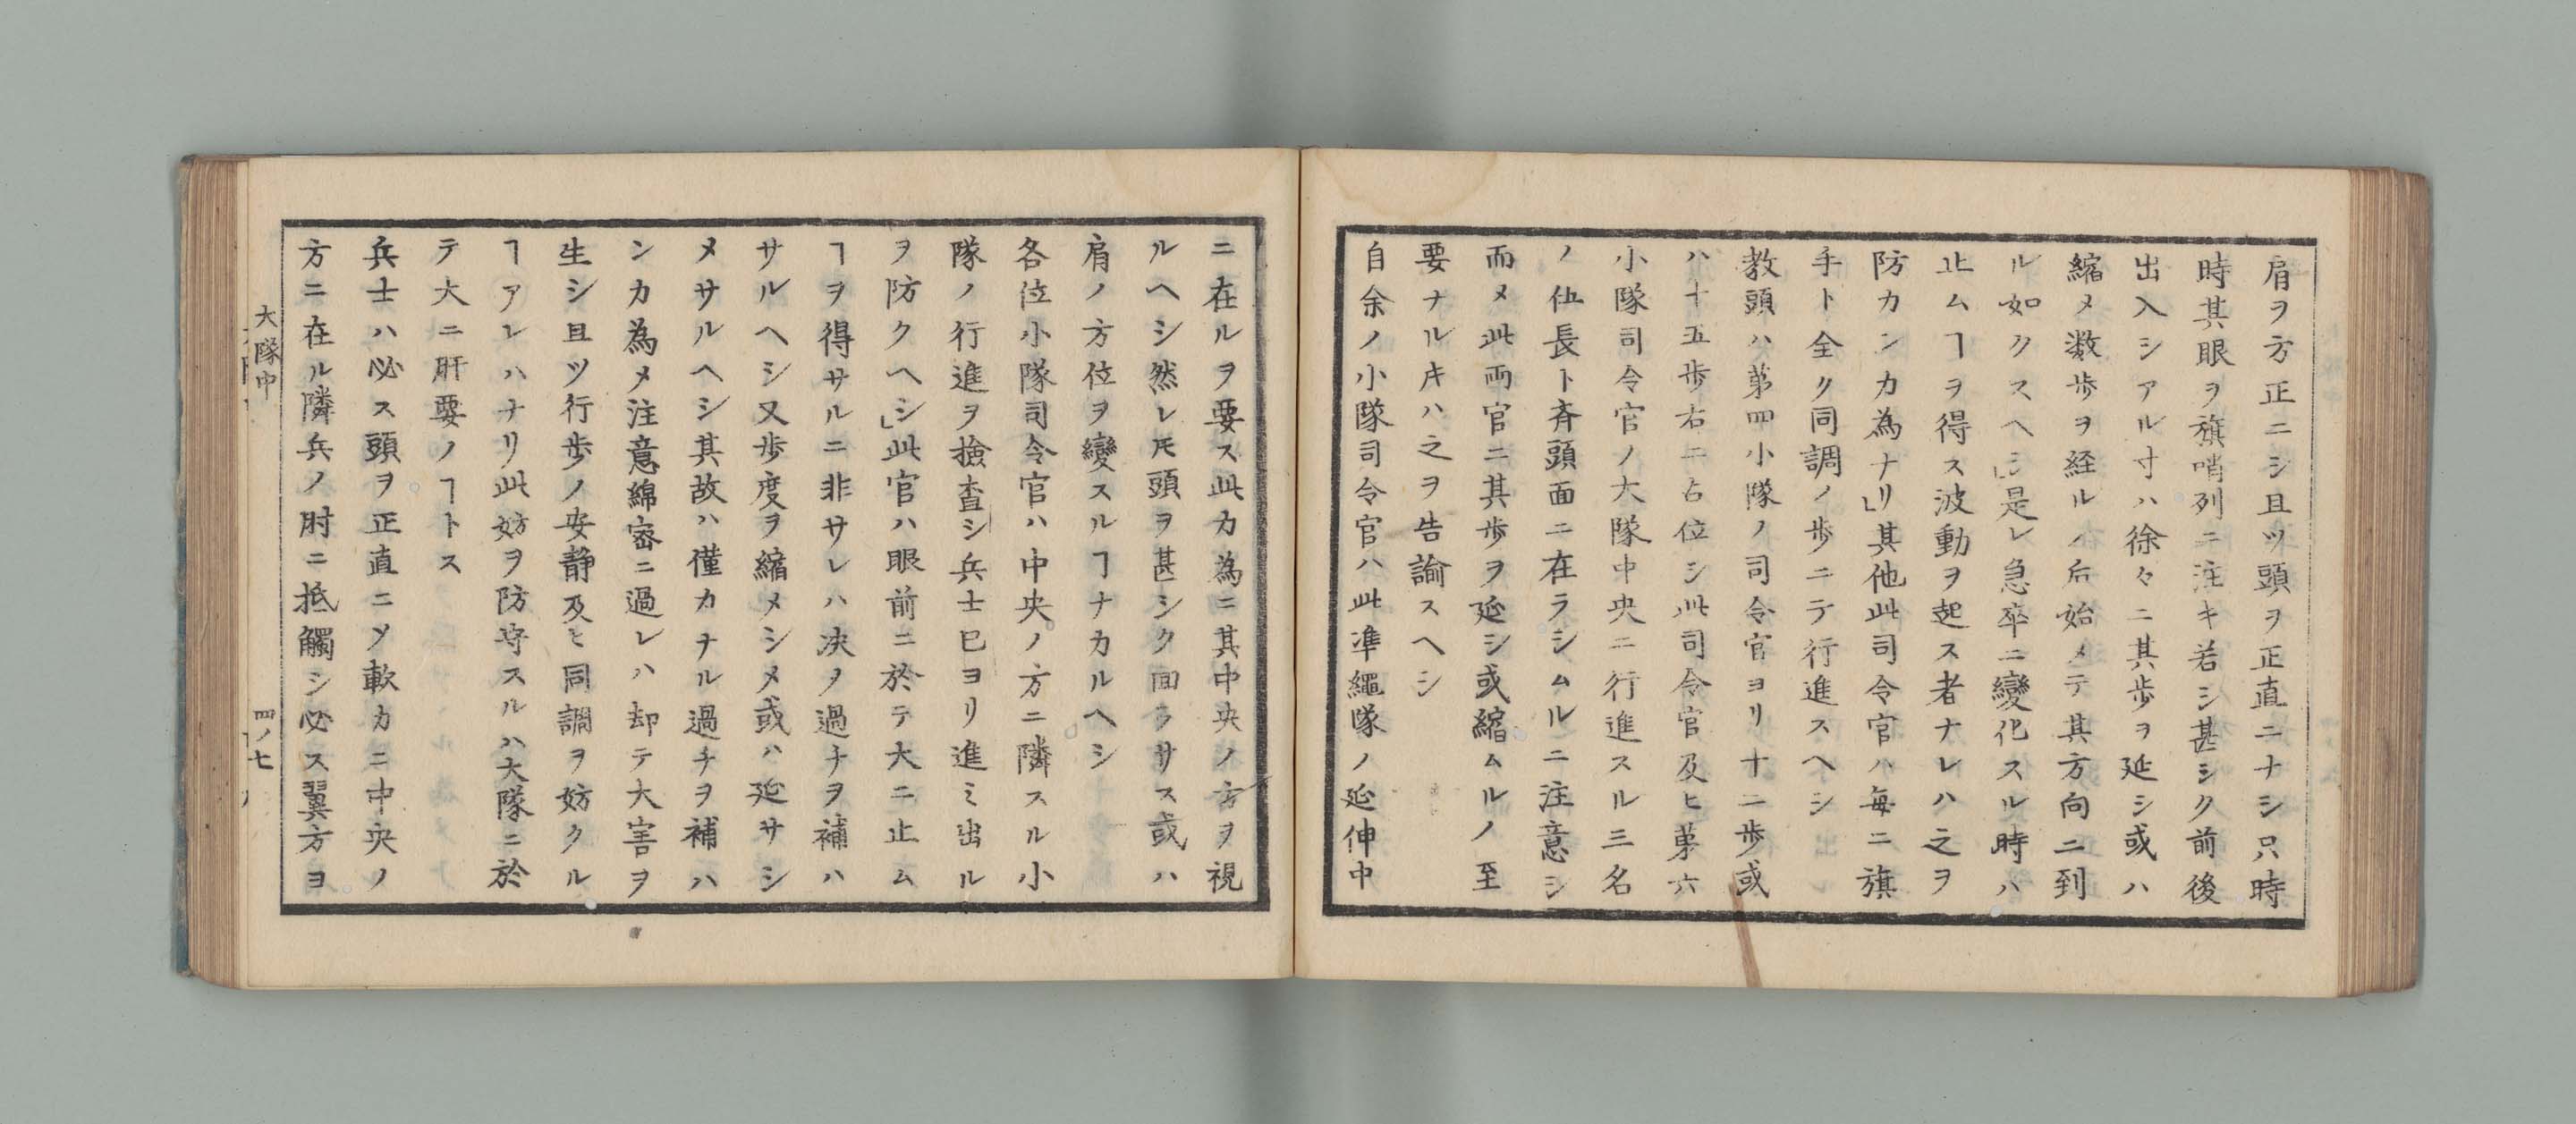 肩ヲ方正ニシ且ツ頭ヲ正直ニナシ只時
時其眼ヲ旗哨列ニ注キ若シ甚シク前後
出入シアル寸ハ徐々ニ其歩ヲ延シ或ハ
縮メ数歩ヲ経ルノ后始メテ其方向ニ到
ル如クスヘシ」是レ急卒ニ變化スル時ハ
止ムヿヲ得ス波動ヲ起ス者ナレハ之ヲ
防カンカ為ナリ」其他此司令官ハ毎ニ旗
手ト全ク同調ノ歩ニテ行進スヘシ
教頭ハ第四小隊ノ司令官ヨリ十二歩或
ハ十五歩右ニ占位シ此司令官及ヒ第六
小隊司令官ノ大隊中央ニ行進スル三名
ノ伍長ト斉頭面ニ在ラシムルニ注意シ
而メ此両官ニ其歩ヲ延シ或縮ムルノ至
要ナル𪜈ハ之ヲ告諭スヘシ
自余ノ小隊司令官ハ此準繩隊ノ延伸中
ニ在ルヲ要ス此カ為ニ其中央ノ方ヲ視
ルヘシ然レ𪜈頭ヲ甚シク面ラサス或ハ
肩ノ方位ヲ變スルヿナカルヘシ
各位小隊司令官ハ中央ノ方ニ隣スル小
隊ノ行進ヲ撿査シ兵士已ヨリ進ミ出ル
ヲ防クヘシ」此官ハ眼前ニ於テ大ニ止ム
ヿヲ得サルニ非サレハ决ノ過チヲ補ハ
サルヘシ又歩度ヲ縮メシメ或ハ延サシ
メサルヘシ其故ハ僅カナル過チヲ補ハ
ンカ為メ注意綿密ニ過レハ却テ大害ヲ
生シ且ツ行歩ノ安静及ヒ同調ヲ妨クル
ヿアレハナリ此妨ヲ防守スルハ大隊ニ於
テ大ニ肝要ノヿトス
兵士ハ必ス頭ヲ正直ニメ軟カニ中央ノ
方ニ在ル隣兵ノ肘ニ抵觸シ必ス翼方ヨ
大隊中
四ノ七